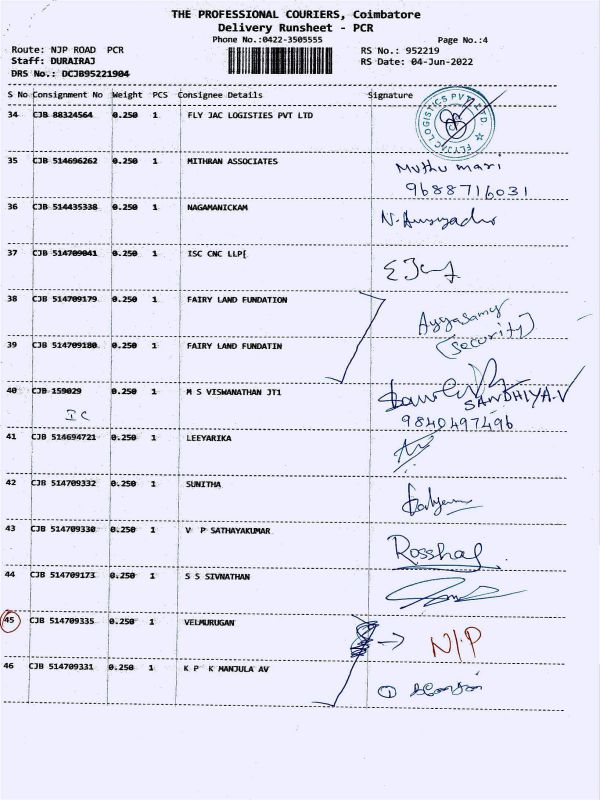 THE PROFESSIONAL COURIERS, Coimbatore
Delivery Runsheet - PCR
Phone No.:0422-3505555 Page No.:4
Route: NJP ROAD PCR RS No.: 952219
Staff: DURAIRAJ RS Date: 04-Jun-2022
DRS No.: DCJB95221904
S No Consignment No Weight PCS Consignee Details Signature
34 CJB 88324564 0.250 1 FLY JAC LOGISTIES PVT LTD
FLYJAC LOGISTICS PVT. LTD.
35 CJB 514696262 0.250 1 MITHRAN ASSOCIATES Muthu mari
9688716031
36 CJB 514435338 0.250 1 NAGAMANICKAM
37 CJB 514709041 0.250 1 ISC CNC LLP[
38 CJB 514709179 0.250 1 FAIRY LAND FUNDATION Ayyasamy
(Security)
39 CJB 514709180 0.250 1 FAIRY LAND FUNDATIN
40 CJB 159029 0.250 1 M S VISWANATHAN JT1 SANDHIYA.V
IC 9840497496
41 CJB 514694721 0.250 1 LEEYARIKA
42 CJB 514709332 0.250 1 SUNITHA
43 CJB 514709330 0.250 1 V P SATHAYAKUMAR
44 CJB 514709173 0.250 1 S S SIVNATHAN
45 CJB 514709335 0.250 1 VELMURUGAN N/P
46 CJB 514709331 0.250 1 K P K MANJULA AV